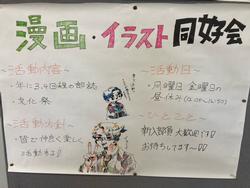 漫画・イラスト同好会
〜活動内容〜
・年に3,4回程の部誌
・文化祭
〜活動方針〜
・皆で仲良く楽しく
活動します!!
〜活動日〜
・月曜日 金曜日の
昼休み
〜ひとこと〜
新入部員大歓迎です!!
お待ちしてます〜